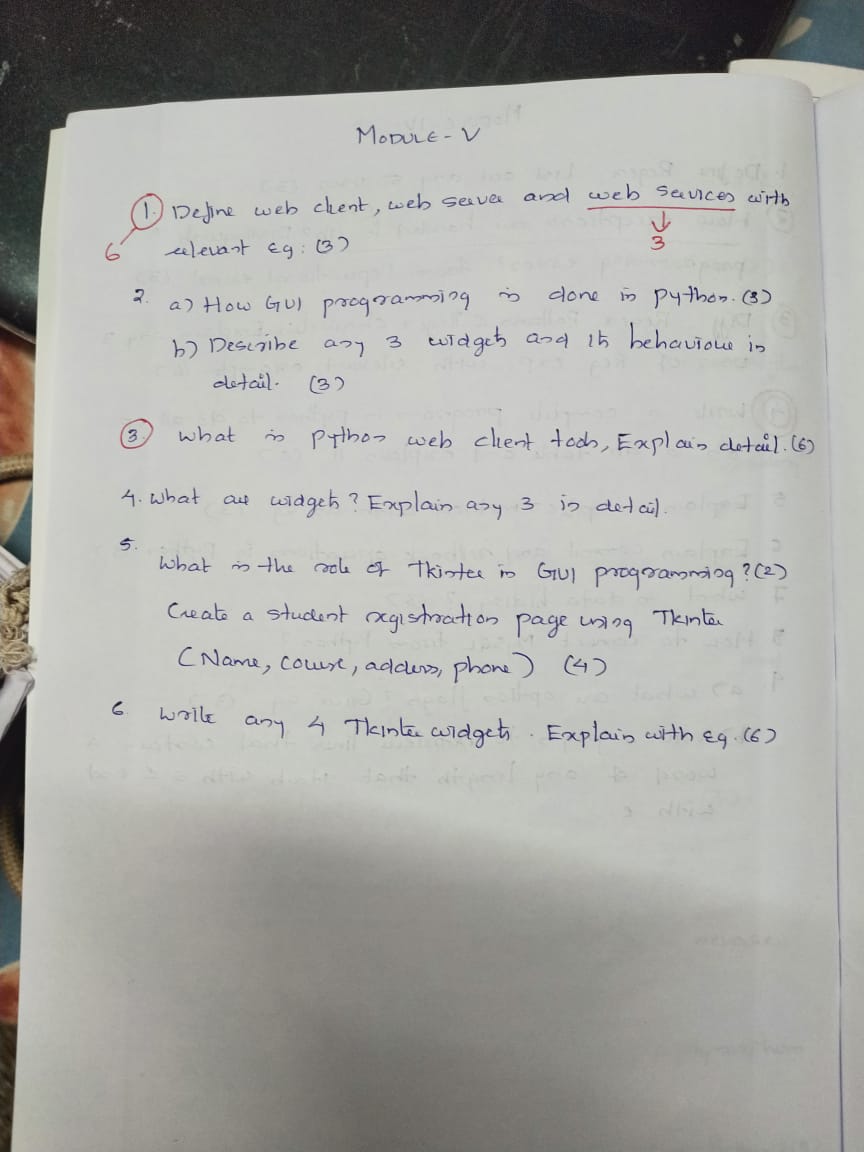 MODULE - V
1. Define web client, web server and web services with
6
3
relevant eg: (3)
2. a) How GUI programming is done in python. (3)
b) Describe any 3 widgets and its behaviour in
detail. (3)
3. What is Python web client tools, Explain detail. (6)
4. What are widgets? Explain any 3 in detail.
5.
What is the role of Tkinter in GUI programming? (2)
Create a student registration page using Tkinter
(Name, course, address, phone) (4)
6 Write any 4 Tkinter widgets. Explain with eg. (6)